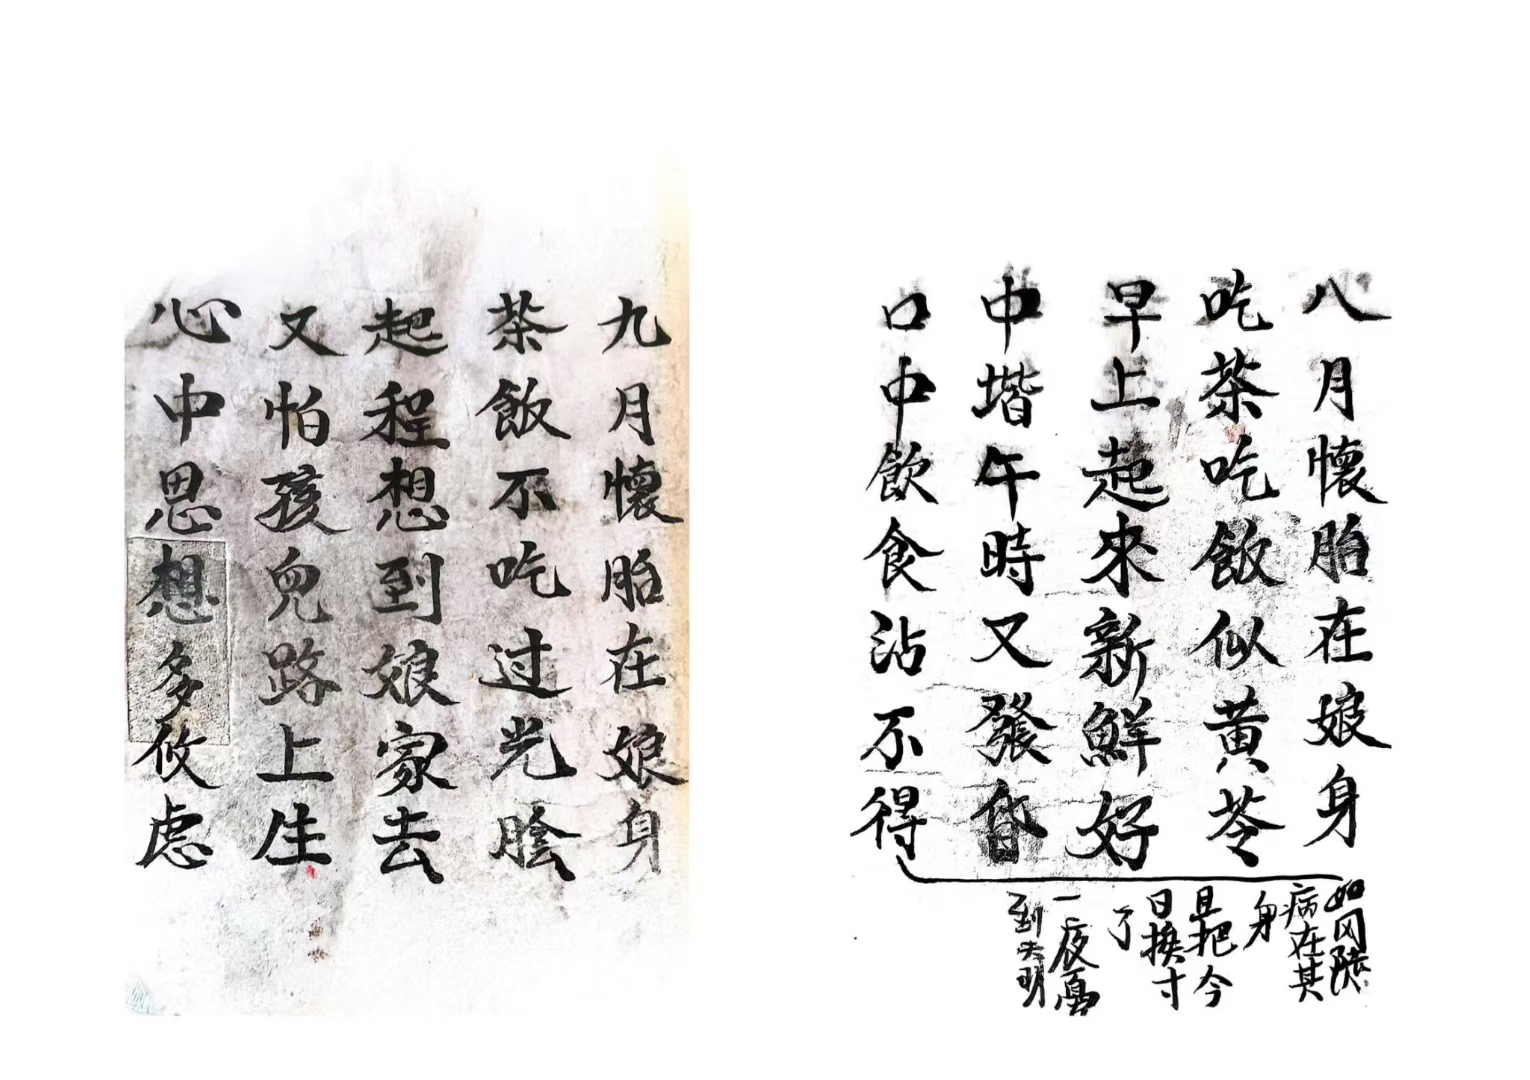 八月懷胎在娘身
吃茶吃飯似黄苓
早上起來新鮮好
中堦午時又發昏
口中飲食沾不得
如
病在其
身
且把今
日換寸
了
一夜
到天明
九月懷胎在娘身
茶飯不吃过光陰
起程想到娘家去
又怕孩兒路上生
心中思想多攸虑